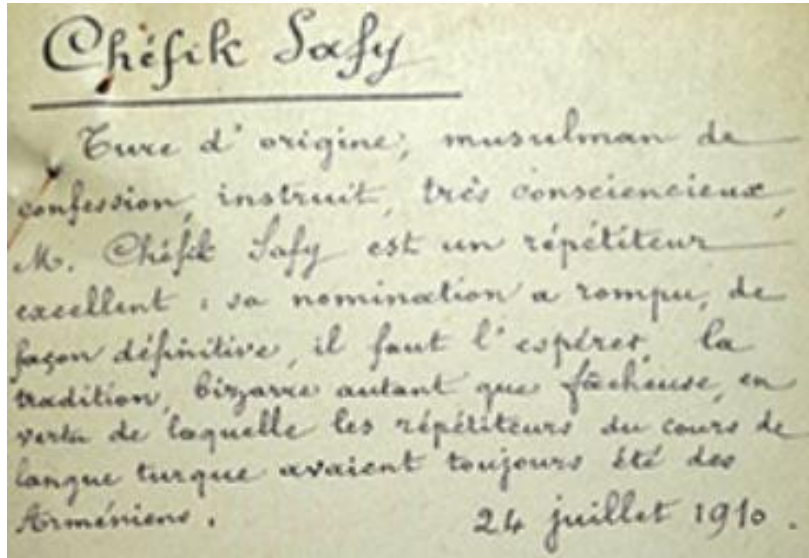 Chéfik Safy
Turc d'origine, musulman de
confession, instruit, très consciencieux,
M. Chéfik Safy est un répétiteur
excellent : sa nomination a rompu, de
façon définitive, il faut l'espérer, la
tradition, bizarre autant que fâcheuse, en
vertu de laquelle les répétiteurs du cours de
langue turque avaient toujours été des
Arméniens.
24 juillet 1910.